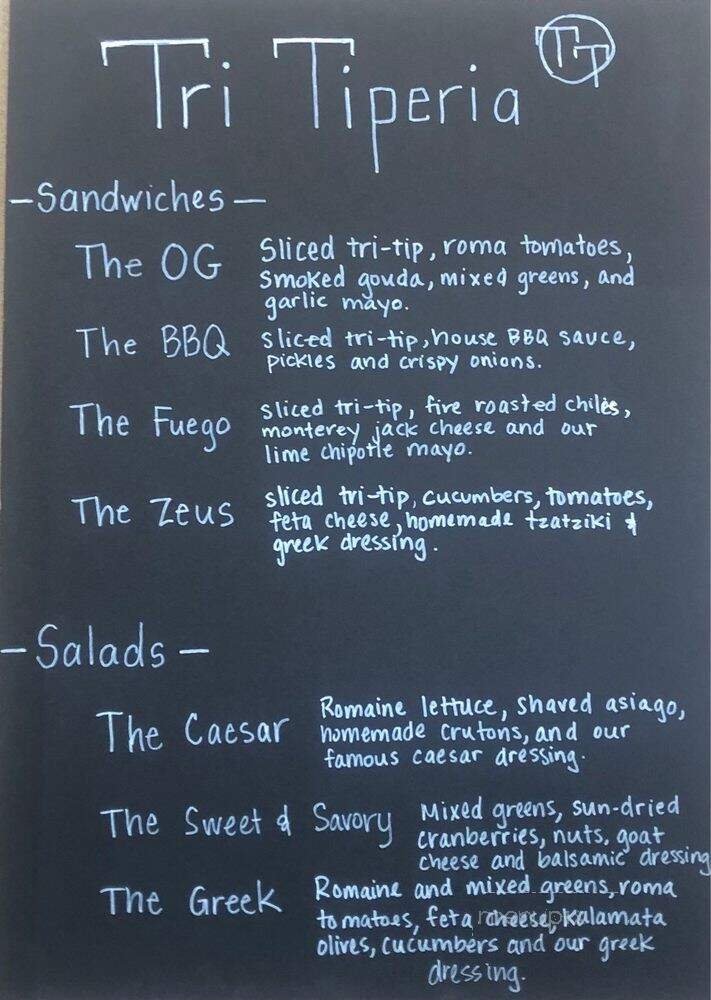 Tri Tiperia TT
-Sandwiches-
The OG
sliced tri-tip, roma tomatoes,
smoked gouda, mixed greens, and
garlic mayo.
The BBQ
sliced tri-tip, house BBQ sauce,
pickles and crispy onions.
The Fuego
sliced tri-tip, fire roasted chiles,
monterey jack cheese and our
lime chipotle mayo.
The Zeus
sliced tri-tip, cucumbers, tomatoes,
feta cheese, homemade tzatziki &
greek dressing.
-Salads-
The Caesar
Romaine lettuce, shaved asiago,
homemade crutons, and our
famous caesar dressing.
The Sweet & Savory
Mixed greens, sun-dried
cranberries, nuts, goat
cheese and balsamic dressing
The Greek
Romaine and mixed greens, roma
tomatoes, feta cheese, kalamata
olives, cucumbers and our greek
dressing.